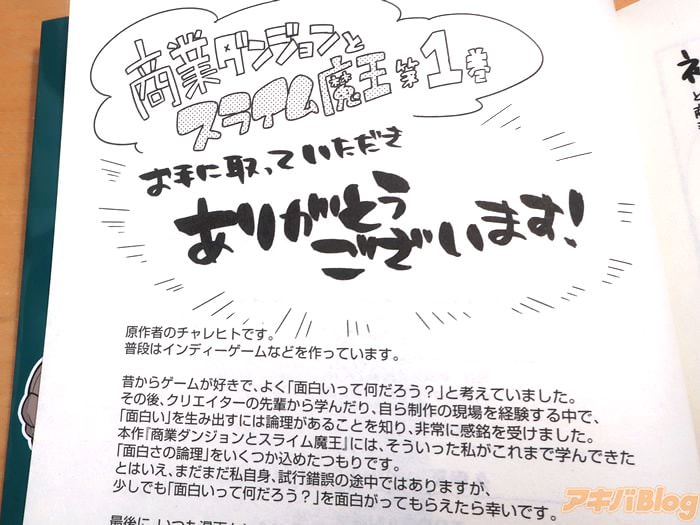 商業ダンジョンと
スライム魔王 第1巻
お手に取っていただき
ありがとう
ございます!
原作者のチャレヒトです。
普段はインディーゲームなどを作っています。
昔からゲームが好きで、よく「面白いって何だろう?」と考えていました。
その後、クリエイターの先輩から学んだり、自ら制作の現場を経験する中で、
「面白い」を生み出すには論理があることを知り、非常に感銘を受けました。
本作『商業ダンジョンとスライム魔王』には、そういった私がこれまで学んできた
「面白さの論理」をいくつか込めたつもりです。
とはいえ、まだまだ私自身、試行錯誤の途中ではありますが、
少しでも「面白いって何だろう?」を面白がってもらえたら幸いです。
アキバBlog